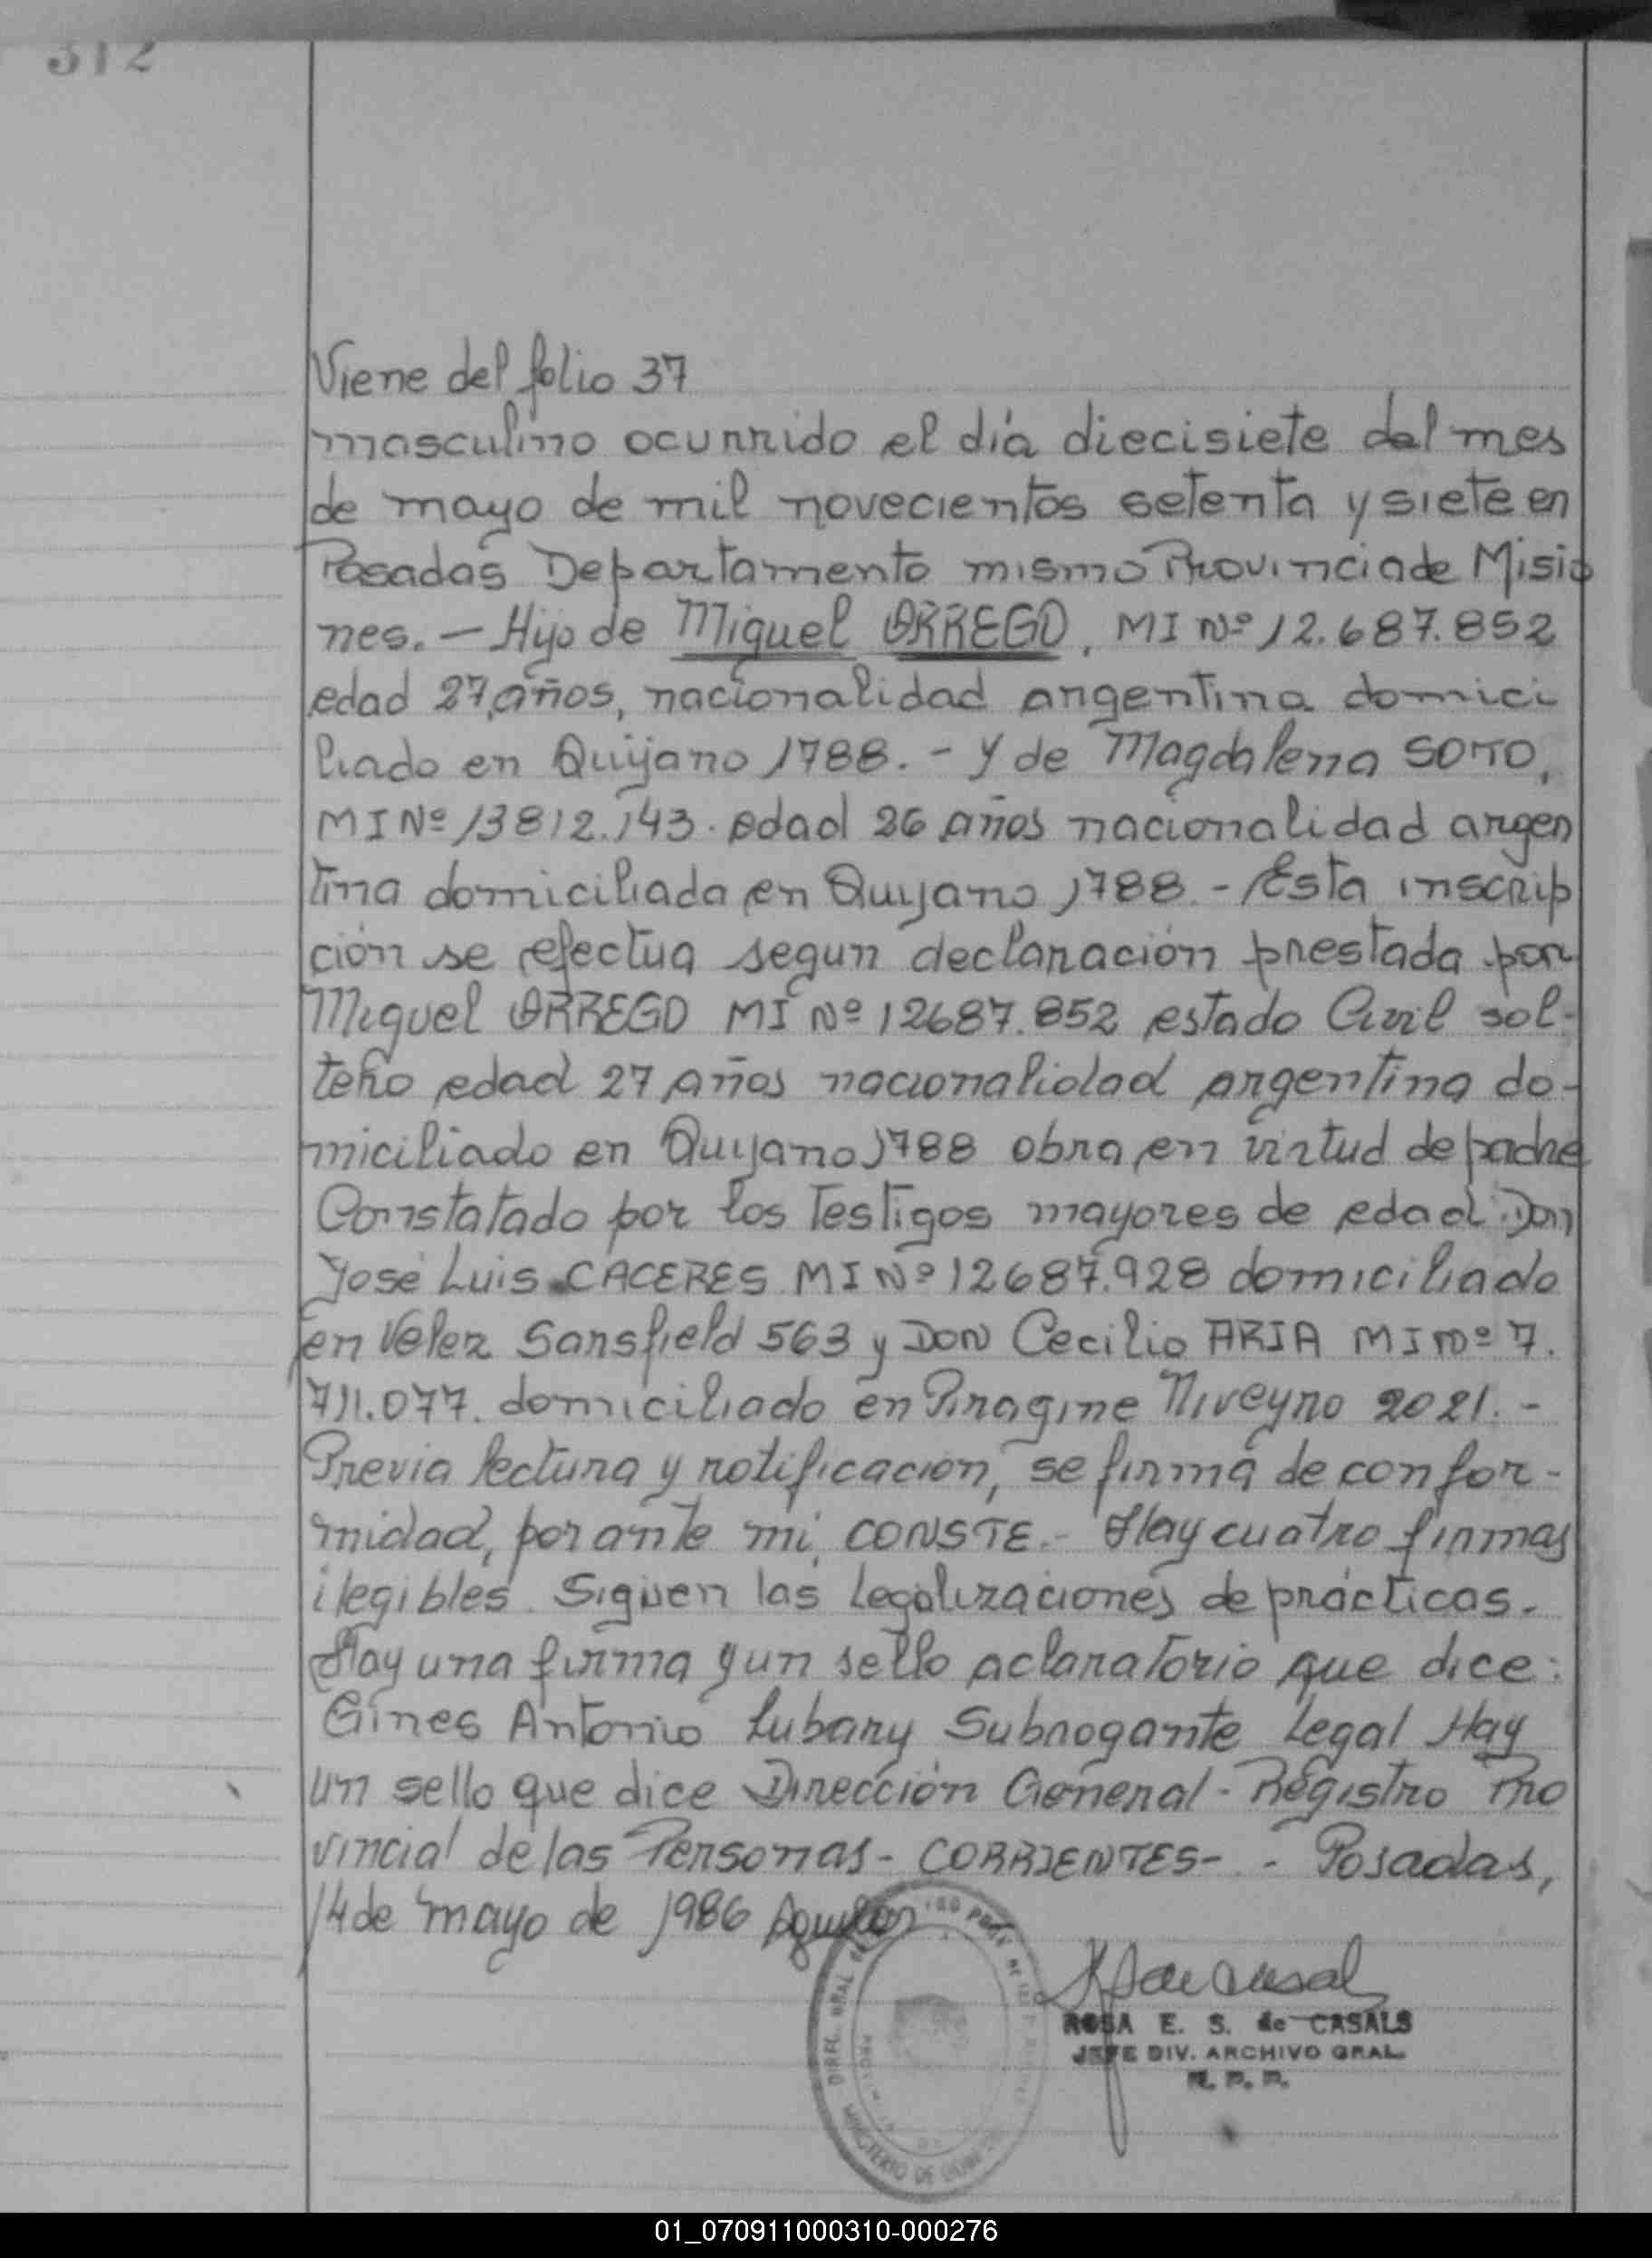 312
Viene del folio 37
masculino ocurrido el día diecisiete del mes
de mayo de mil novecientos setenta y siete en
Posadas Departamento mismo Provincia de Misio
nes. — Hijo de Miguel ORREGO, MI Nº 12.687.852
edad 27 años, nacionalidad argentina domici
liado en Quijano 1788. - y de Magdalena SOTTO,
MI Nº 13812.143. edad 26 años nacionalidad argen
tina domiciliada en Quijano 1788. - Esta inscrip
ción se efectua segun declaración prestada por
Miguel ORREGO MI Nº 12687.852 estado Civil sol-
tero edad 27 años nacionalidad argentina do-
miciliado en Quijano 1788 obra en virtud de padre
Constatado por los Testigos mayores de edad: Don
José Luis CACERES MI Nº 12687.928 domiciliado
en Velez Sarsfield 563 y DON Cecilio ARIA MI Nº 7.
711.077. domiciliado en Piragine Niveyro 2021. -
Previa lectura y notificacion, se firma de confor-
midad, por ante mi, CONSTE. - Hay cuatro firmas
ilegibles. Siguen las Legalizaciones de prácticas.
Hay una firma y un sello aclaratorio que dice:
Gines Antonio Lubary Subrogante Legal Hay
un sello que dice Dirección General - Registro Pro
vincial de las Personas - CORRIENTES - - Posadas,
14 de mayo de 1986
ROSA E. S. de CASALS
JEFE DIV. ARCHIVO GRAL.
DIREC. GRAL
MINISTERIO DE
01_070911000310-000276